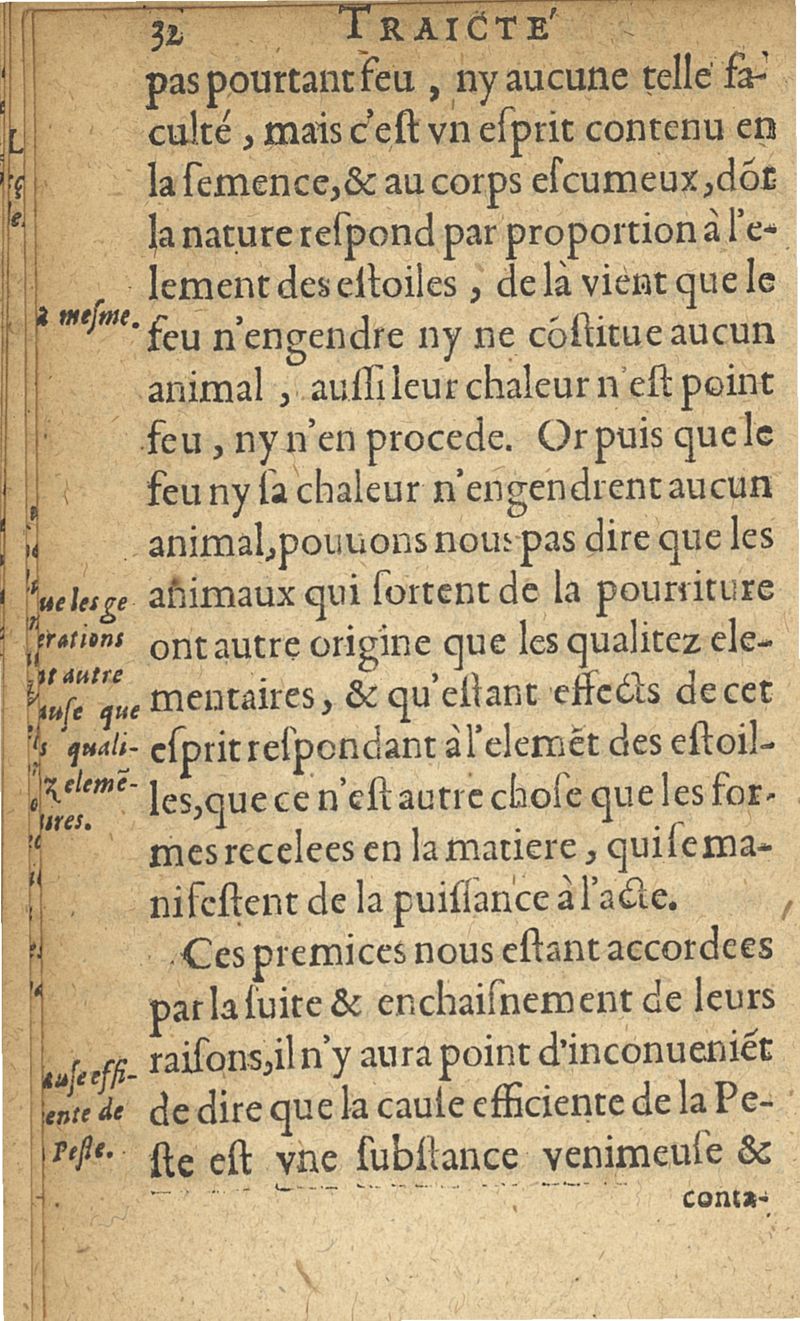 32 TRAICTÉ
pas pourtant feu , ny aucune telle fa-
culté , mais c'eſt vn eſprit contenu en
la ſemence,& au corps eſcumeux,dõt
la nature reſpond par proportion à l'e-
lement des eſtoiles , de là vient que le
à meſme.
feu n'engendre ny ne cõſtitue aucun
animal , auſſi leur chaleur n'eſt point
feu , ny n'en procede. Or puis que le
feu ny ſa chaleur n'engendrent aucun
animal,pouuons nous pas dire que les
animaux qui ſortent de la pourriture
ont autre origine que les qualitez ele-
mentaires, & qu'eſtant effects de cet
eſprit reſpondant à l'elemẽt des eſtoil-
les,que ce n'eſt autre choſe que les for-
mes recelees en la matiere , qui ſe ma-
nifeſtent de la puiſſance à l'acte.
ue les ge
erations
t autre
auſe que
s quali-
z elemẽ-
ires.
Ces premices nous eſtant accordees
par la ſuite & enchaiſnement de leurs
raiſons,il n'y aura point d'inconueniẽt
de dire que la cauſe efficiente de la Pe-
ſte eſt vne ſubſtance venimeuſe &
auſe effi-
iente de
Peſte.
conta-